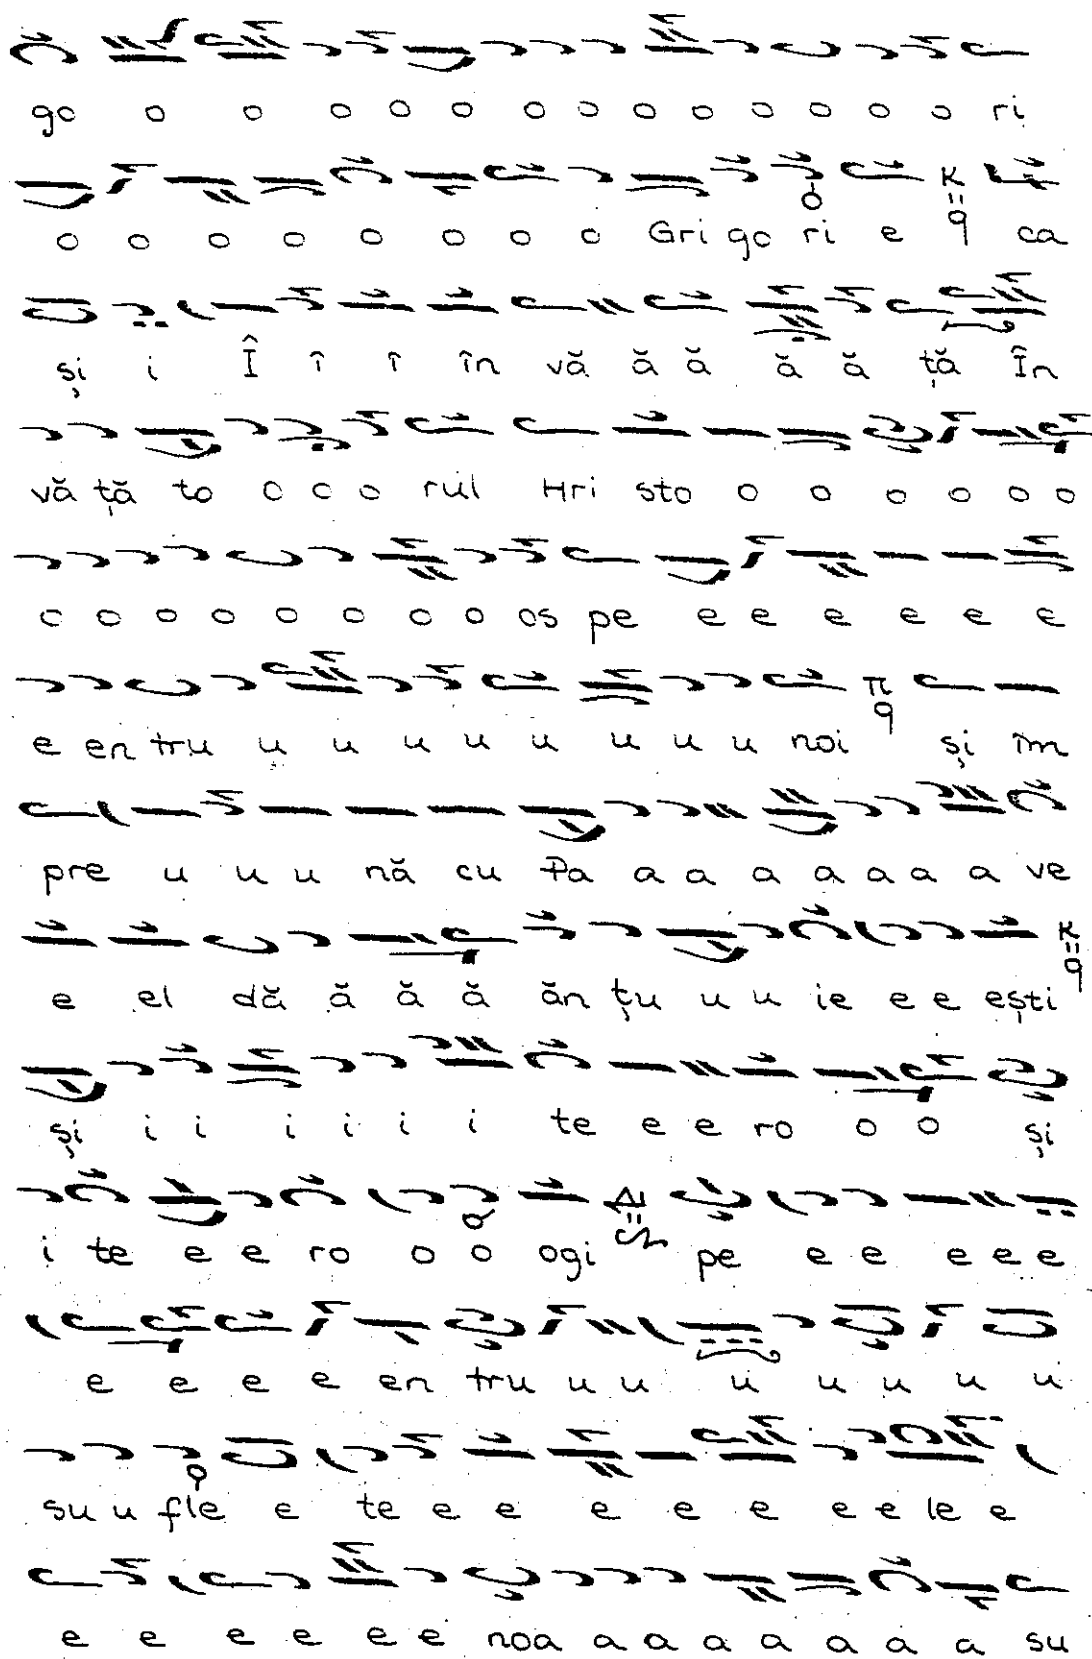 go o o o o o o o o o o o o o ri
o o o o o o o o Gri go ri e ca
și i Î î î în vă ă ă ă ă ță În
vă ță to o o o rul Hri sto o o o o o
o o o o o o o o os pe e e e e e e
e en tru u u u u u u u u noi și îm
pre u u u nă cu Pa a a a a a a a ve
e el dă ă ă ă ăn țu u u ie e e ești
și i i i i i i te e e ro o o și
i te e e ro o o ogi pe e e e e e
e e e e en tru u u u u u u u
su u fle e te e e e e e e e le e
e e e e e e noa a a a a a a a su